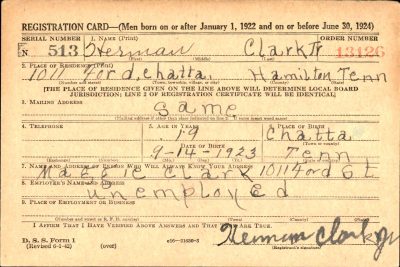 REGISTRATION CARD—(Men born on or after January 1, 1922 and on or before June 30, 1924)
SERIAL NUMBER 1. NAME (Print) ORDER NUMBER
N 513 Herman Clark Jr 13126
(First) (Middle) (Last)
2. PLACE OF RESIDENCE (Print)
1011 Ford, Chatta. Hamilton Tenn
(Number and street) (Town, township, village, or city) (County) (State)
[THE PLACE OF RESIDENCE GIVEN ON THE LINE ABOVE WILL DETERMINE LOCAL BOARD
JURISDICTION; LINE 2 OF REGISTRATION CERTIFICATE WILL BE IDENTICAL]
3. MAILING ADDRESS
Same
(Mailing address if other than place indicated on line 2. If same insert word same)
4. TELEPHONE 5. AGE IN YEARS 6. PLACE OF BIRTH
19 Chatta
DATE OF BIRTH (Town or county)
9-14-1923 Tenn
(Exchange) (Number) (Mo.) (Day) (Yr.) (State or country)
7. NAME AND ADDRESS OF PERSON WHO WILL ALWAYS KNOW YOUR ADDRESS
Maggie Clark 1011 Ford St
8. EMPLOYER'S NAME AND ADDRESS
unemployed
9. PLACE OF EMPLOYMENT OR BUSINESS
(Number and street or R. F. D. number) (Town) (County) (State)
I AFFIRM THAT I HAVE VERIFIED ABOVE ANSWERS AND THAT THEY ARE TRUE.
D. S. S. Form 1 Herman Clark Jr
(Revised 6-9-42) (over) (Registrant's signature)